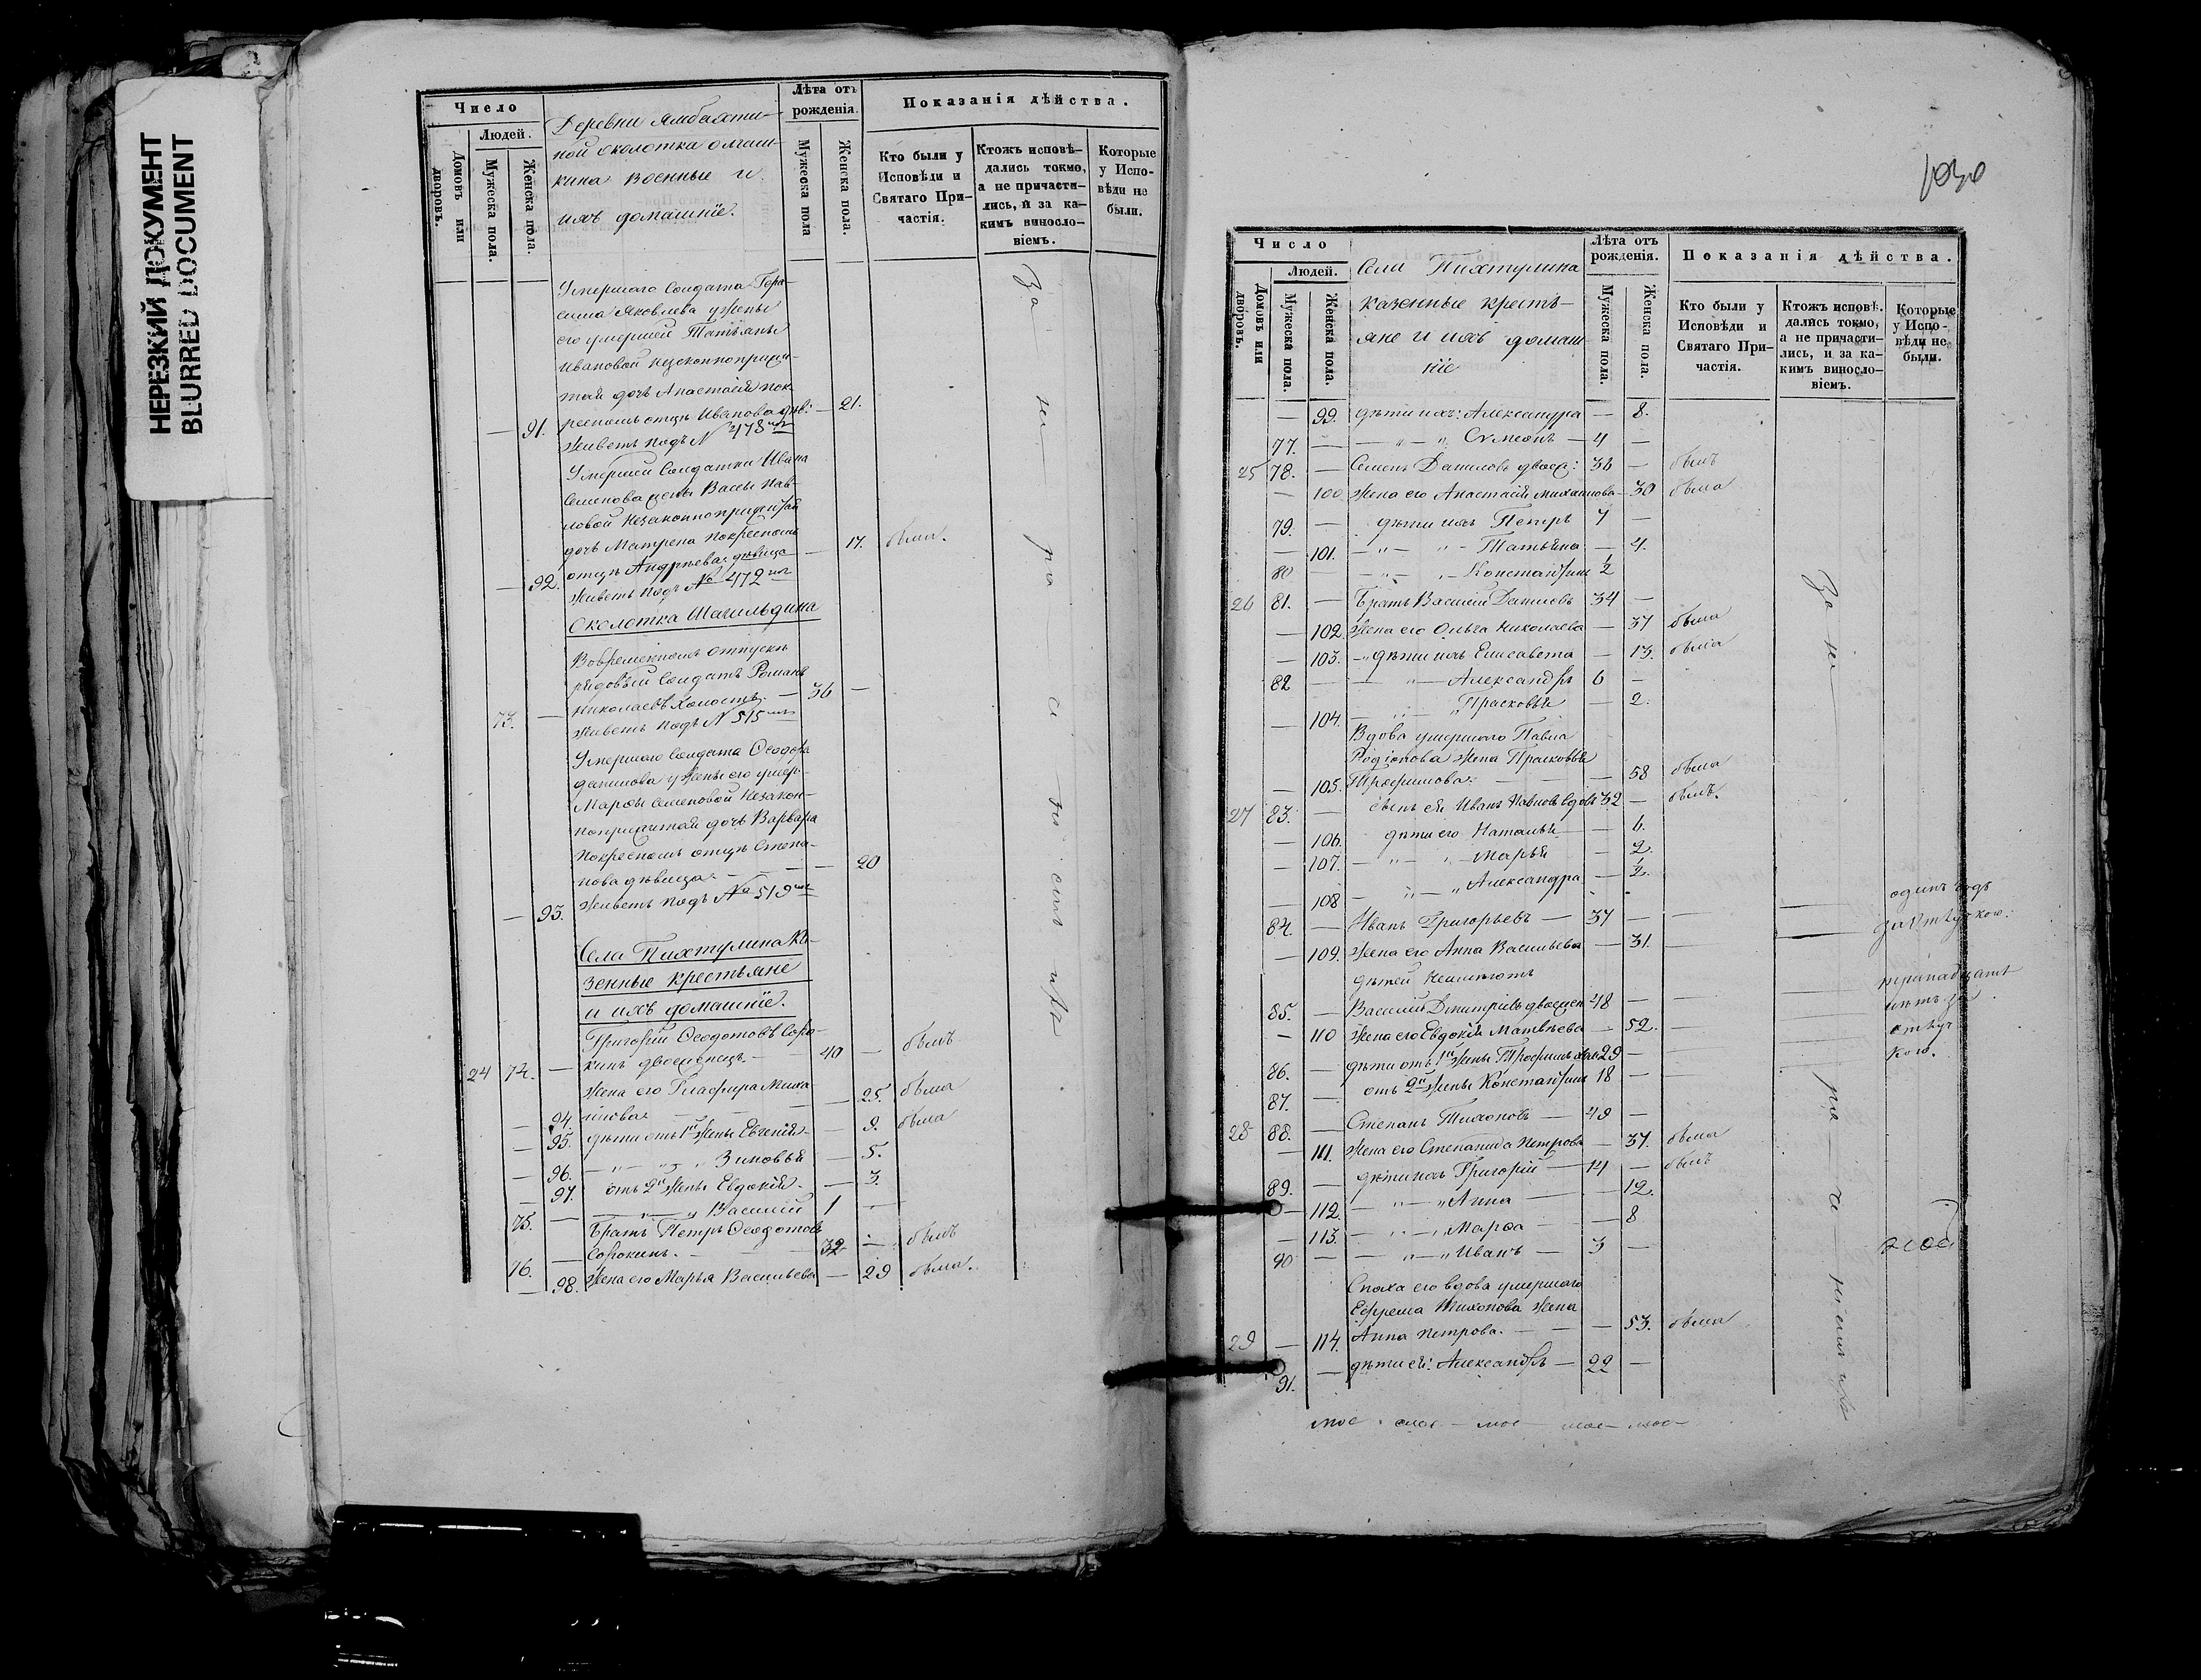 НЕРЕЗКИЙ ДОКУМЕНТ
BLURRED DOCUMENT
Число
Людей.
Домовъ или дворовъ.
Мужеска пола.
Женска пола.
Деревни Ямбахти-
ной околотка
военные и
ихъ домашніе.
Лѣта отъ рожденія.
Мужеска пола
Женска пола.
Показанія дѣйства.
Кто были у Исповѣди и Святаго При-частія.
Ктожъ исповѣ-дались токмо, а не причасти-лись, и за ка-кимъ винсло-віемъ.
Которые у Испо-вѣди не были.
Умершаго Солдата Гера-
сима Яковлева у жены
его умершей Татьяны
Ивановой незаконноприжи-
тая дочь Анастасія по к-
91. рестномъ отцѣ Иванова дѣв: — 21.
живетъ подъ № 478мъ
Умершей Солдатки Ивана
Семенова жены Вассы Пав-
ловой незаконноприжитая
дочь Матрена по крестномъ
92. отцѣ Андреева дѣвица — 17. была.
живетъ подъ № 472мъ
Околотка Шагильдина
Во временномъ отпускѣ
рядовый Солдатъ Романъ
73. — Николаевъ Холостъ — 36 —
живетъ подъ № 515мъ
Умершаго Солдата Ѳеодора
Данилова у жены его умер-
Марѳы Семеновой незакон-
ноприжитая дочь Варвара
по крестномъ отцѣ Степа-
нова дѣвица — 20
— 93. живетъ подъ № 519мъ
Села Пихтулина Ка-
зенные крестьяне
и ихъ домашніе.
Григорій Ѳеодотовъ Соро-
24 74. — кинъ двоеженецъ — 40 — былъ
Жена его Глафира Миха
— 94. илова — 25. была
— 95. дѣти отъ 1й жены Евгенія — 9. была
— 96. Зиновья — 5.
— 97. отъ 2й жены Евдокія — 3.
75. — Василій 1 —
Братъ Петръ Ѳеодотовъ
76. — Сорокинъ. — 32 — былъ
— 98. Жена его Марья Васильева — 29 была.
Число
Людей.
Домовъ или дворовъ.
Мужеска пола.
Женска пола.
Села Пихтулина
казенные кресть-
яне и ихъ домаш
ніе
Лѣта отъ рожденія.
Мужеска пола.
Женска пола.
Показанія дѣйства.
Кто были у Исповѣди и Святаго При-частія.
Ктожъ исповѣ-дались токмо, а не причасти-лись, и за ка-кимъ винсло-віемъ.
Которые у Испо-вѣди не были.
— 99. дѣти ихъ: Александра — 8.
77. — Сумеонъ — 4 —
25 78. — Семенъ Даниловъ двоеж: 36 — былъ
— 100 Жена его Анастасія Михаилова — 30 была
79. — дѣти ихъ Петръ 7 —
— 101. Татьяна — 4.
80 — Константинъ 2
26 81. — Братъ Василій Даниловъ 34 —
— 102. Жена его Ольга Николаева — 37 была
— 103. дѣти ихъ Елисавета — 13. была
82 — Александръ 6 —
— 104. Прасковья — 2.
Вдова умершаго Павла
Родіонова жена Прасковья
— 105. Трофимова — 58 была
27 83. — сынъ ея Иванъ Павловъ вдовъ 32 — былъ.
— 106. дѣти его Наталья — 6.
— 107. Марья — 2.
— 108 Александра — 2.
84. — Иванъ Григорьевъ — 37 —
— 109. Жена его Анна Васильева — 31.
дѣтей не имѣютъ
одинъ годъ
за отлучкою.
85. — Василій Димитріевъ двоежен 48 —
— 110 Жена его Евдокія Матвѣева — 52.
86. — дѣти отъ 1й жены Трофимъ 29 —
87. — отъ 2й жены Константинъ 18 —
тринадцать
лѣтъ за
отлуч
кою.
28 88. — Степанъ Тихоновъ — 49 —
— 111. Жена его Степанида Петрова — 37. была
89. — дѣти ихъ Григорій — 14 — былъ
— 112. Анна — 12.
— 113. Марѳа — 8
90 — Иванъ — 3 —
Сноха его вдова умершаго
Ефрема Тихонова жена
29 — 114. Анна Петрова. — 53. была
91. — дѣти ея: Александръ — 22 —